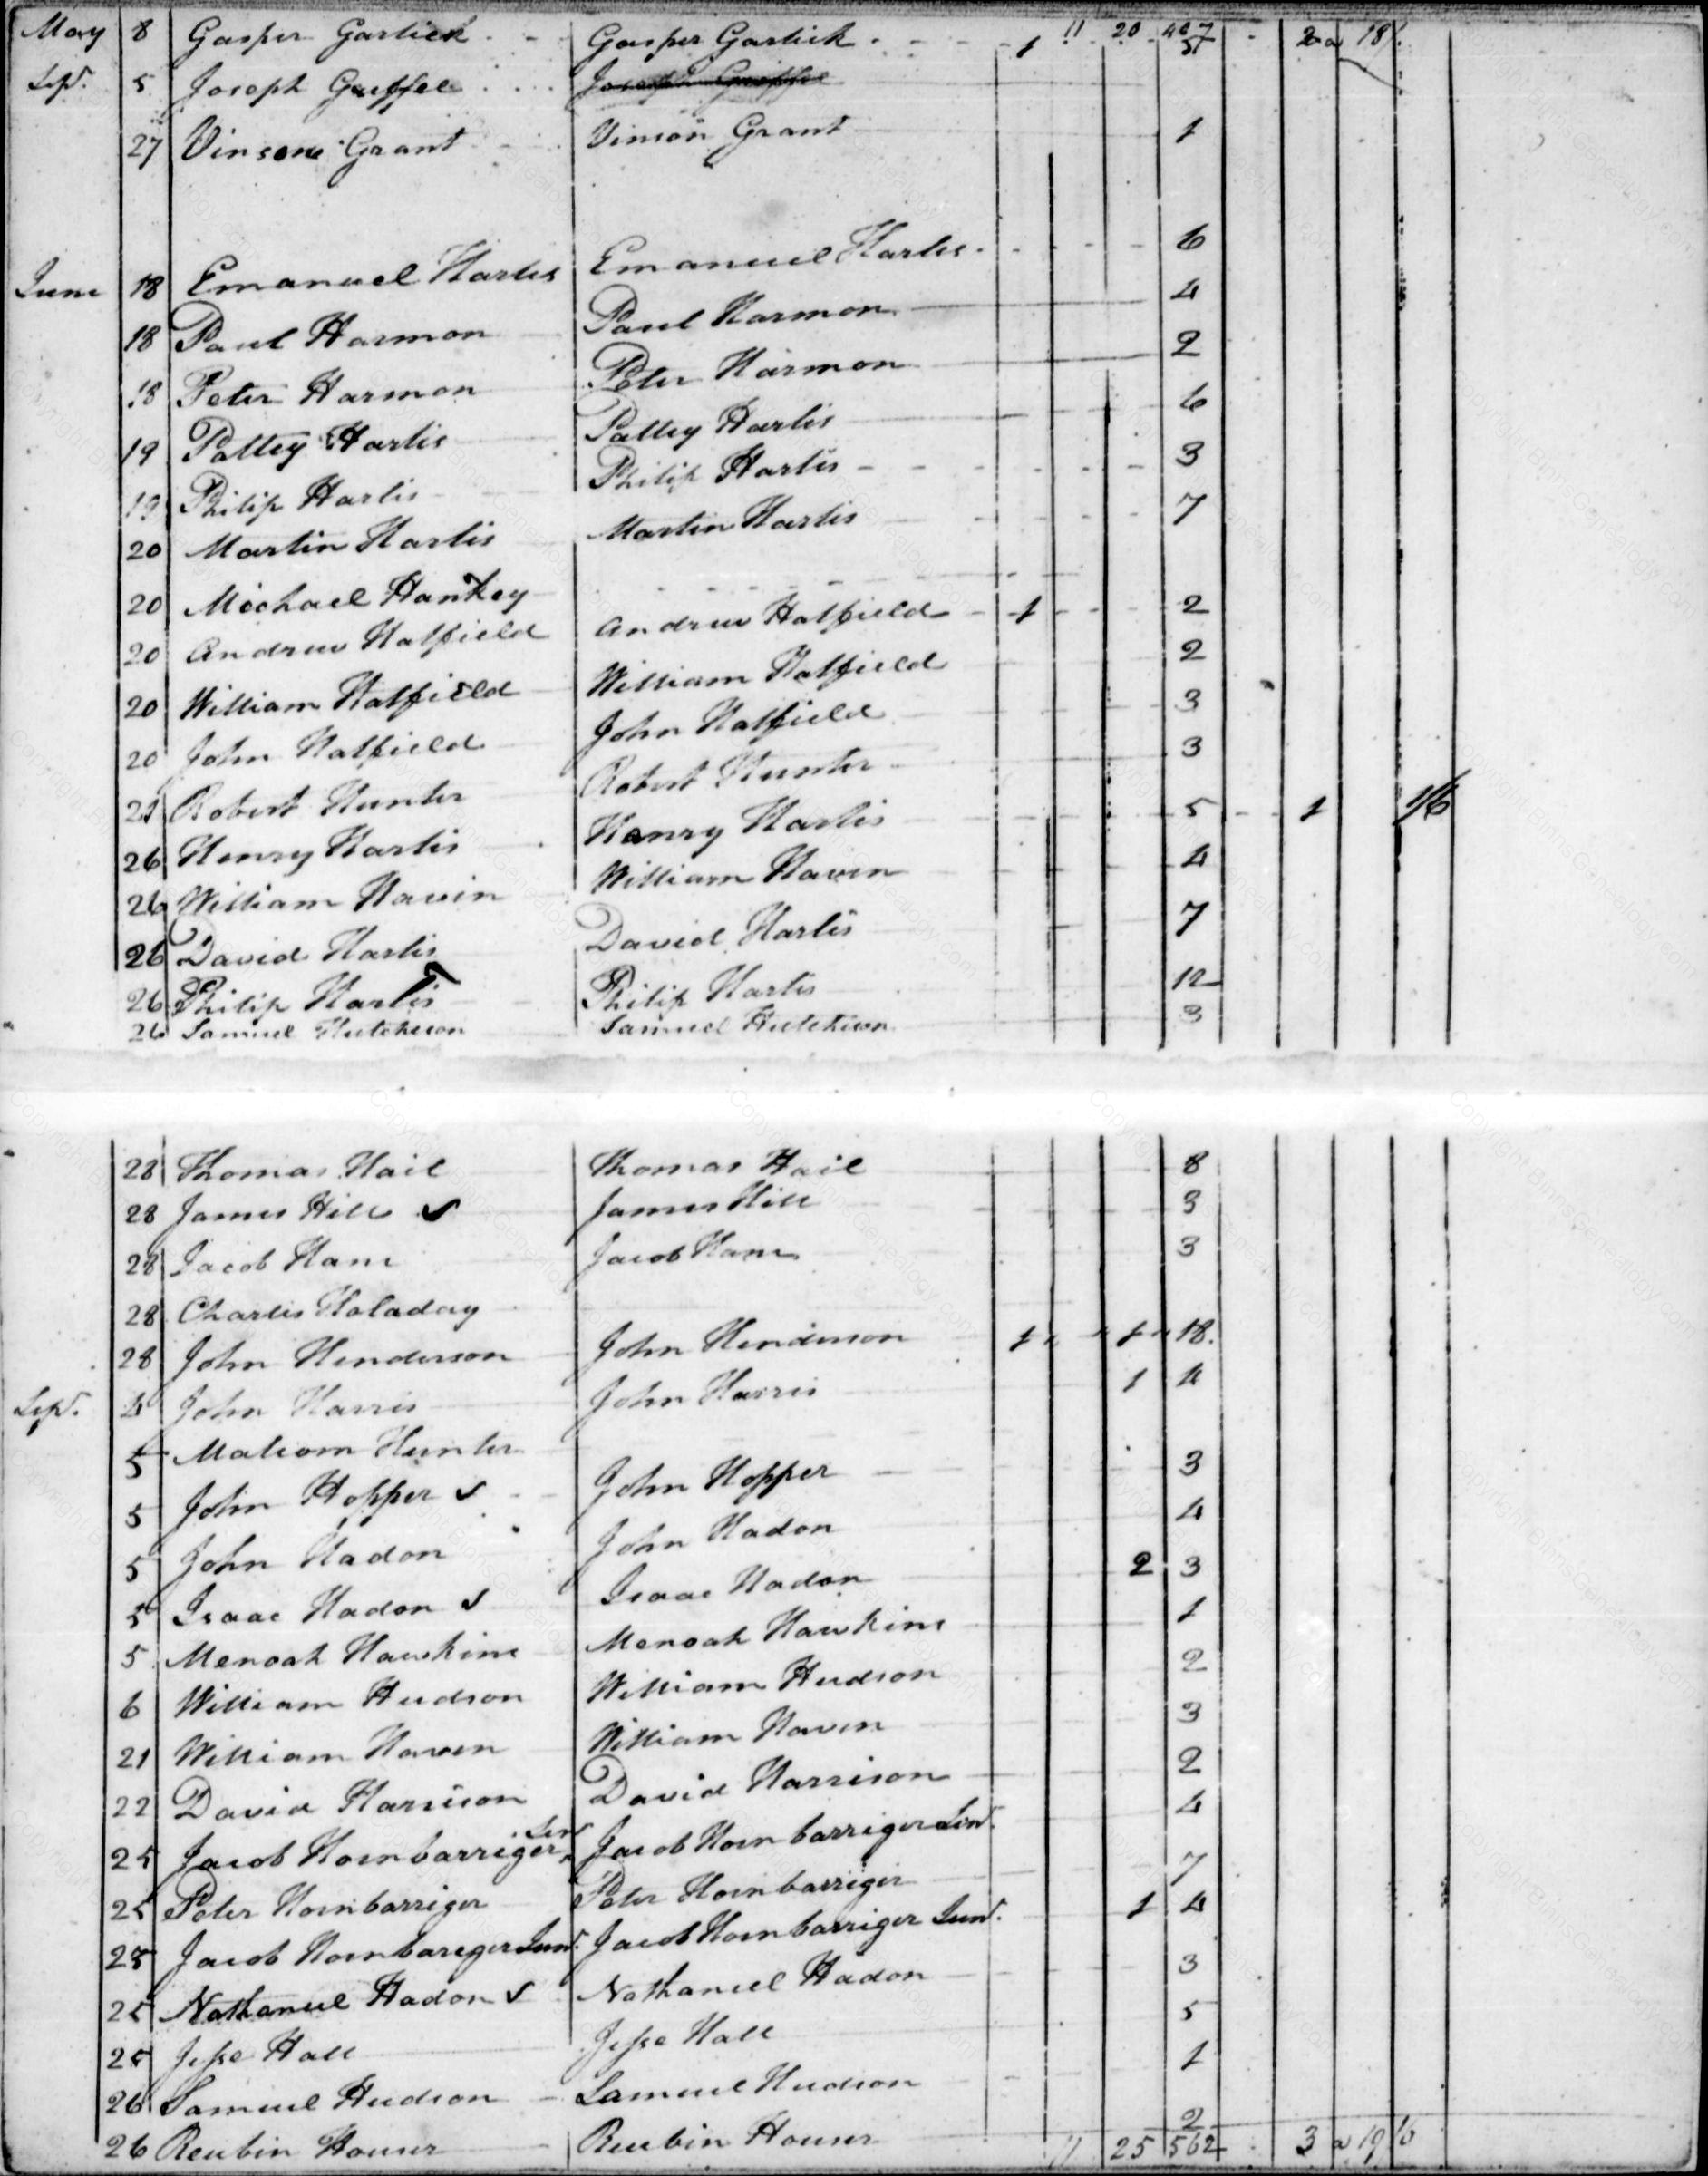 May 8 Gasper Garlick Gasper Garlick 1 11 20 407 5 2 a 18/.
Sepr. 5 Joseph Guffee Joseph Guffee
27 Vinson Grant Vinson Grant 1
June 18 Emanuel Harlis Emanuel Harlis 6
18 Paul Harmon Paul Harmon 4
18 Peter Harmon Peter Harmon 2
19 Pattey Harlis Pattey Harlis 6
19 Philip Harlis Philip Harlis 3
20 Martin Harlis Martin Harlis 7
20 Michael Hankey
20 Andrew Hatfield Andrew Hatfield 1 2
20 William Hatfield William Hatfield 2
20 John Hatfield John Hatfield 3
21 Robert Hunter Robert Hunter 3
26 Henry Harlis Henry Harlis 5 1 1/6
26 William Havin William Haven 4
26 David Harlis David Harlis 7
26 Philip Harlis Philip Harlis 12
26 Samuel Hutcheson Samuel Hutcheson 3
28 Thomas Hail Thomas Hail 8
28 James Hill James Hill 3
28 Jacob Ham Jacob Ham 3
28 Charles Holaday
28 John Henderson John Henderson 1 1 18.
Sepr. 4 John Harris John Harris 1 4
5 Malcom Hunter
5 John Hopper John Hopper 3
5 John Hadon John Hadon 4
5 Isaac Hadon Isaac Hadon 2 3
5 Menoah Hawkins Menoah Hawkins 1
6 William Hudson William Hudson 2
21 William Haven William Haven 3
22 David Harrison David Harrison 2
25 Jacob Hornbarriger Senr Jacob Hornbarriger Senr. 4
25 Peter Hornbarriger Peter Hornbarriger 7
25 Jacob Hornbareger Junr. Jacob Hornbarriger Junr. 1 4
25 Nathaniel Hadon Nathaniel Hadon 3
25 Jesse Hall Jesse Hall 5
26 Samuel Hudson Samuel Hudson 1
26 Reubin Houser Reubin Houser 2
11 25 562 3 a 19/6